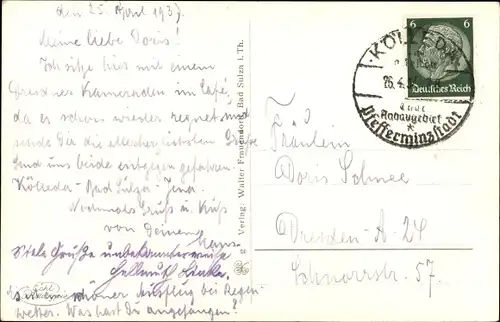 den 25. April 193
Meine liebe Doris!
Ich sitze hier mit einem
Dresdner Kameraden im Café,
da es schon wieder regnet und
sende Dir die allerherzlichsten Grüße
sind uns beide entgegen gefahren.
Kölleda - Bad Sulza - Jena.
Nochmals Gruß u. Kuß
von Deinem
Hans
Viele Grüße unbekannterweise
Hellmuth
schöner Ausflug bei Regen-
wetter. Was hast Du angefangen?
Verlag: Walter Frauendorf, Bad Sulza i. Th.
KÖLLEDA
26.4.
Pfefferminzstadt
6 6
Deutsches Reich
Fräulein
Doris Schnee
Dresden-A. 24
Schnorrstr. 57.